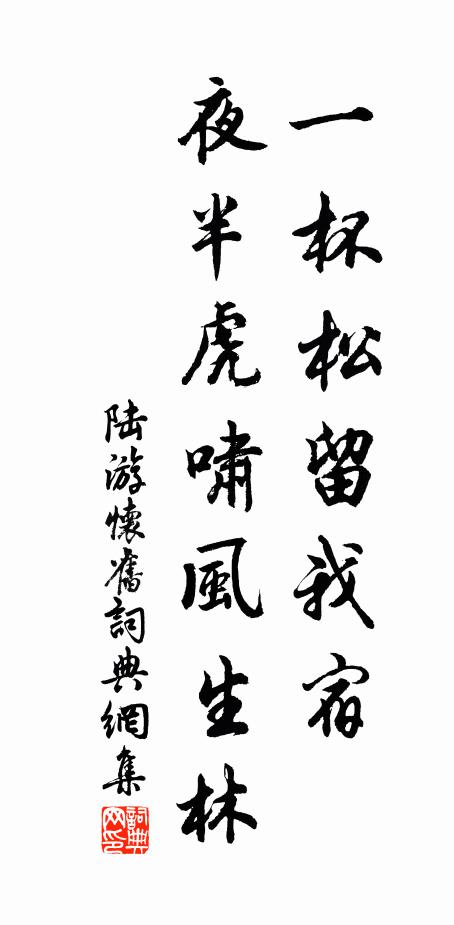 一杯松留我宿
夜半虎嘯風生林
陆游懷舊詞典網集
詞典网印